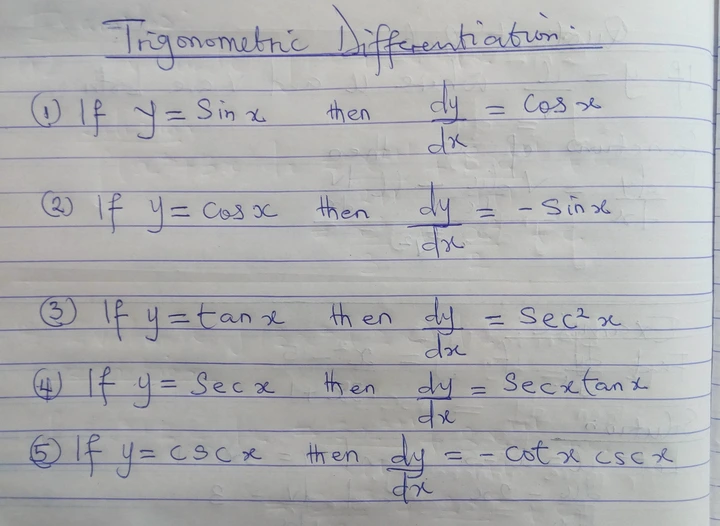 Trigonometric Differentiation.
① If y = Sin x then dy/dx = Cos x
② If y = Cos x then dy/dx = - Sin x
③ If y = tan x then dy/dx = Sec² x
④ If y = Sec x then dy/dx = Sec x tan x
⑤ If y = csc x then dy/dx = - cot x csc x